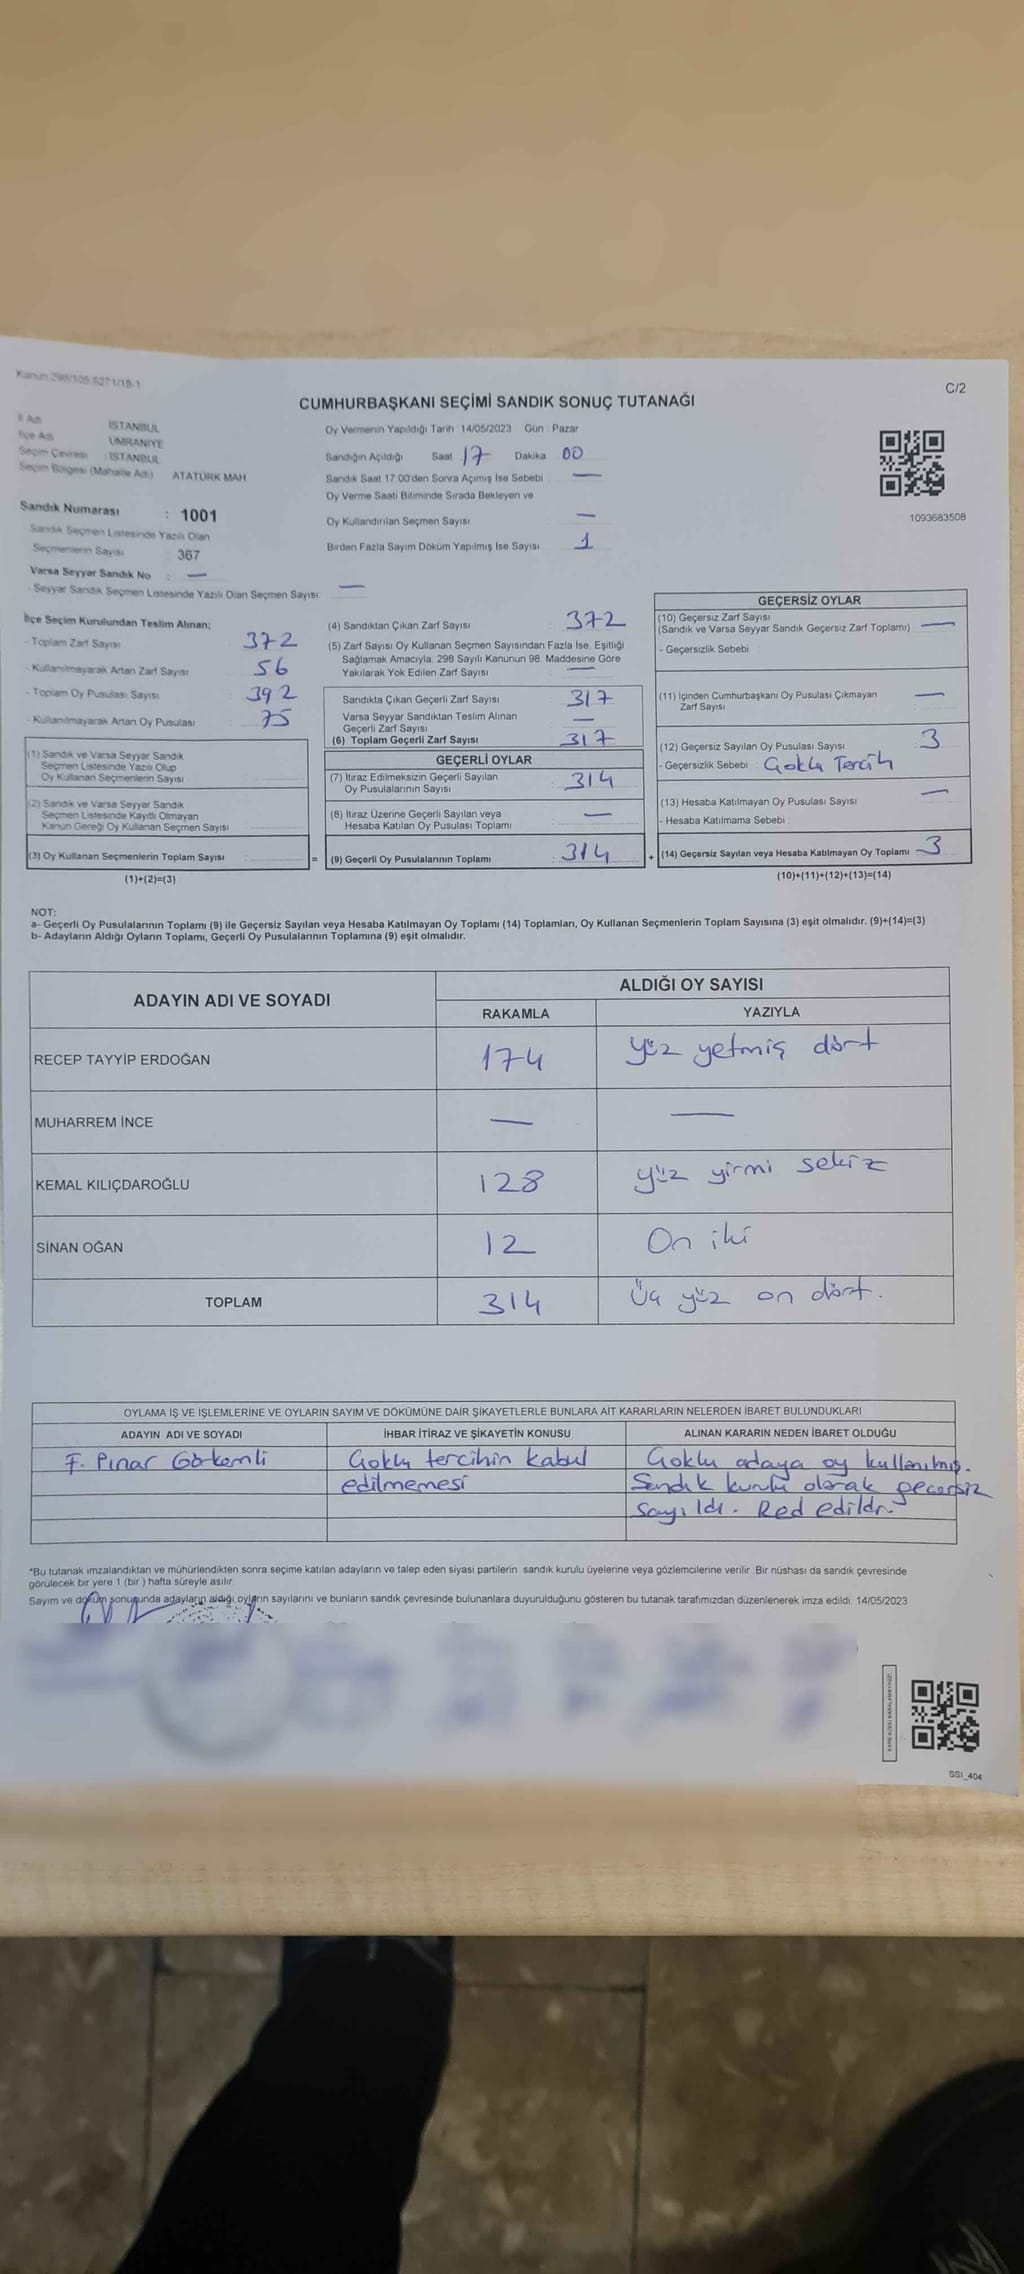 Kanun 298/105,6271/18-1
C/2
CUMHURBAŞKANI SEÇİMİ SANDIK SONUÇ TUTANAĞI
İl Adı İSTANBUL
İlçe Adı ÜMRANİYE
Seçim Çevresi : İSTANBUL
Seçim Bölgesi (Mahalle Adı) ATATÜRK MAH
Sandık Numarası : 1001
Sandık Seçmen Listesinde Yazılı Olan
Seçmenlerin Sayısı : 367
Varsa Seyyar Sandık No : —
- Seyyar Sandık Seçmen Listesinde Yazılı Olan Seçmen Sayısı —
Oy Vermenin Yapıldığı Tarih :14/05/2023 Gün : Pazar
Sandığın Açıldığı Saat 17 Dakika 00
Sandık Saat 17:00'den Sonra Açımış İse Sebebi : —
Oy Verme Saati Bitiminde Sırada Bekleyen ve
Oy Kullandırılan Seçmen Sayısı —
Birden Fazla Sayım Döküm Yapılmış İse Sayısı : 1
1093683508
İlçe Seçim Kurulundan Teslim Alınan;
- Toplam Zarf Sayısı 372
- Kullanılmayarak Artan Zarf Sayısı 56
- Toplam Oy Pusulası Sayısı 392
- Kullanılmayarak Artan Oy Pusulası 75
(1) Sandık ve Varsa Seyyar Sandık
Seçmen Listesinde Yazılı Olup
Oy Kullanan Seçmenlerin Sayısı
(2) Sandık ve Varsa Seyyar Sandık
Seçmen Listesinde Kayıtlı Olmayan
Kanun Gereği Oy Kullanan Seçmen Sayısı
(3) Oy Kullanan Seçmenlerin Toplam Sayısı =
(1)+(2)=(3)
(4) Sandıktan Çıkan Zarf Sayısı 372
(5) Zarf Sayısı Oy Kullanan Seçmen Sayısından Fazla İse, Eşitliği
Sağlamak Amacıyla; 298 Sayılı Kanunun 98. Maddesine Göre
Yakılarak Yok Edilen Zarf Sayısı —
Sandıkta Çıkan Geçerli Zarf Sayısı 317
Varsa Seyyar Sandıktan Teslim Alınan
Geçerli Zarf Sayısı —
(6) Toplam Geçerli Zarf Sayısı 317
GEÇERLİ OYLAR
(7) İtiraz Edilmeksizin Geçerli Sayılan
Oy Pusulalarının Sayısı 314
(8) İtiraz Üzerine Geçerli Sayılan veya
Hesaba Katılan Oy Pusulası Toplamı —
(9) Geçerli Oy Pusulalarının Toplamı : 314 +
GEÇERSİZ OYLAR
(10) Geçersiz Zarf Sayısı
(Sandık ve Varsa Seyyar Sandık Geçersiz Zarf Toplamı) —
- Geçersizlik Sebebi :
(11) İçinden Cumhurbaşkanı Oy Pusulası Çıkmayan
Zarf Sayısı —
(12) Geçersiz Sayılan Oy Pusulası Sayısı 3
- Geçersizlik Sebebi : Çoklu Tercih
(13) Hesaba Katılmayan Oy Pusulası Sayısı —
- Hesaba Katılmama Sebebi :
(14) Geçersiz Sayılan veya Hesaba Katılmayan Oy Toplamı 3
(10)+(11)+(12)+(13)=(14)
NOT:
a- Geçerli Oy Pusulalarının Toplamı (9) ile Geçersiz Sayılan veya Hesaba Katılmayan Oy Toplamı (14) Toplamları, Oy Kullanan Seçmenlerin Toplam Sayısına (3) eşit olmalıdır. (9)+(14)=(3)
b- Adayların Aldığı Oyların Toplamı, Geçerli Oy Pusulalarının Toplamına (9) eşit olmalıdır.
ADAYIN ADI VE SOYADI ALDIĞI OY SAYISI
RAKAMLA YAZIYLA
RECEP TAYYİP ERDOĞAN 174 yüz yetmiş dört
MUHARREM İNCE — —
KEMAL KILIÇDAROĞLU 128 yüz yirmi sekiz
SİNAN OĞAN 12 On iki
TOPLAM 314 Üç yüz on dört.
OYLAMA İŞ VE İŞLEMLERİNE VE OYLARIN SAYIM VE DÖKÜMÜNE DAİR ŞİKAYETLERLE BUNLARA AİT KARARLARIN NELERDEN İBARET BULUNDUKLARI
ADAYIN ADI VE SOYADI İHBAR İTİRAZ VE ŞİKAYETİN KONUSU ALINAN KARARIN NEDEN İBARET OLDUĞU
F. Pınar Görkemli Çoklu tercihin kabul Çoklu adaya oy kullanılmış.
edilmemesi Sandık kurulu olarak geçersiz
sayıldı. Red edildi.
*Bu tutanak imzalandıktan ve mühürlendikten sonra seçime katılan adayların ve talep eden siyasi partilerin sandık kurulu üyelerine veya gözlemcilerine verilir. Bir nüshası da sandık çevresinde
görülecek bir yere 1 (bir) hafta süreyle asılır.
Sayım ve döküm sonuşunda adayların aldığı oyların sayılarını ve bunların sandık çevresinde bulunanlara duyurulduğunu gösteren bu tutanak tarafımızdan düzenlenerek imza edildi. 14/05/2023
SSI_404